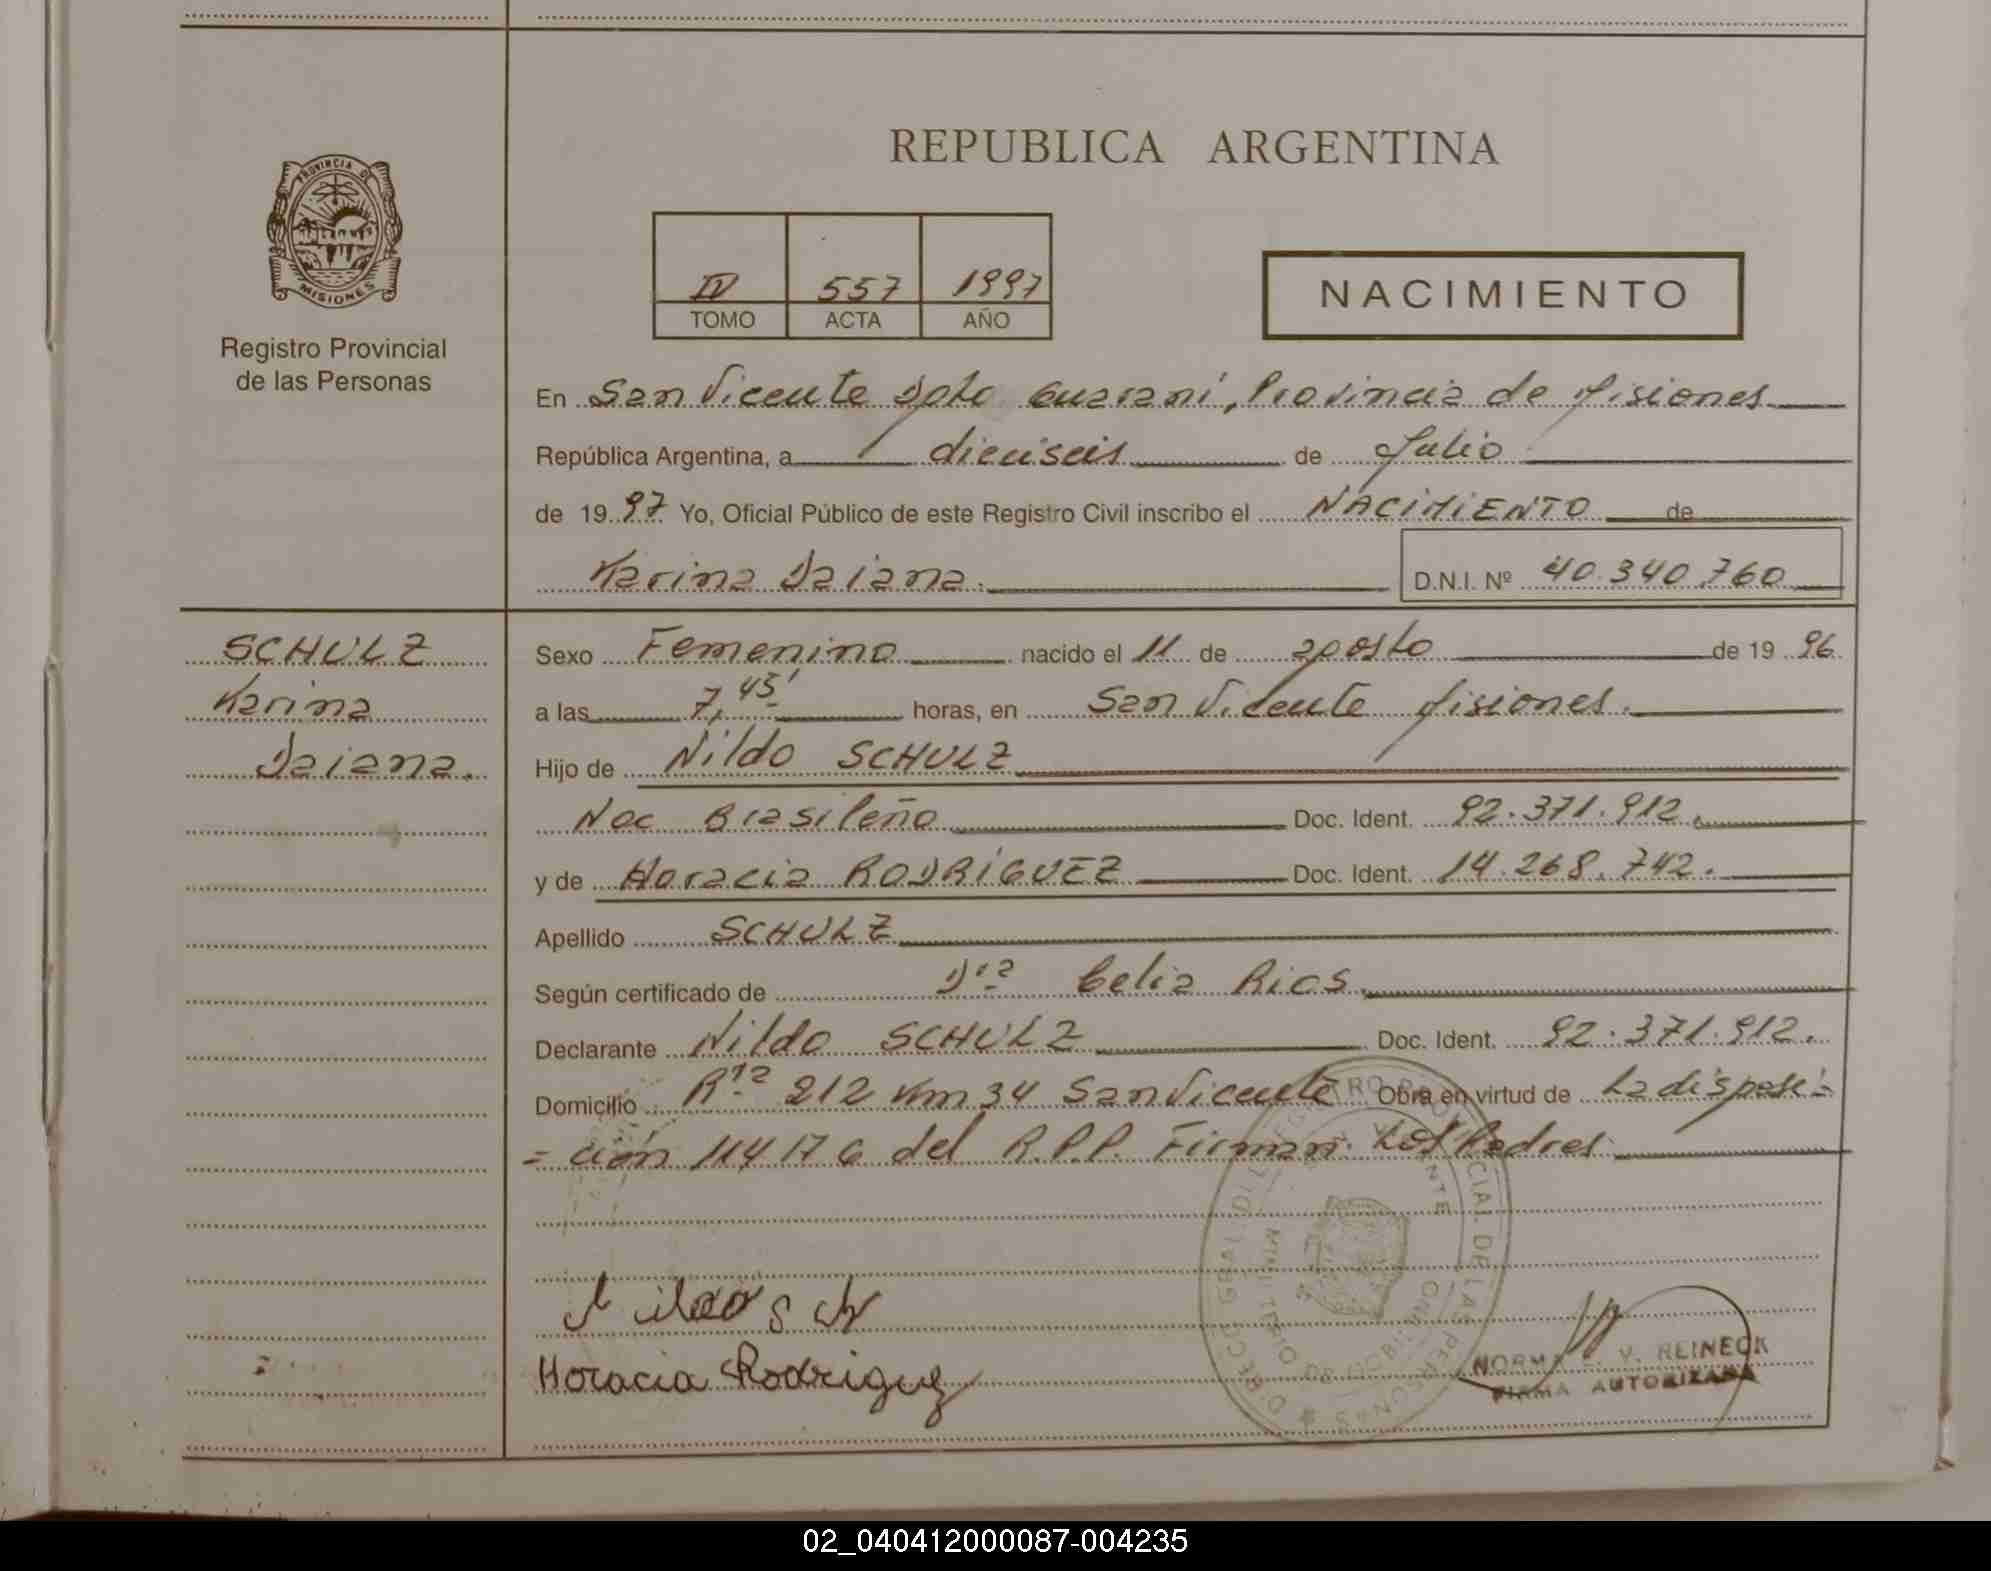 REPUBLICA ARGENTINA
PROVINCIA DE
MISIONES
Registro Provincial
de las Personas
IV 557 1997
TOMO ACTA AÑO
NACIMIENTO
En San Vicente Dpto Guaraní, Provincia de Misiones
República Argentina, a dieciseis de Julio
de 1997 Yo, Oficial Público de este Registro Civil inscribo el NACIMIENTO de
Karina Daiana.
D.N.I. Nº 40.340.760
SCHULZ
Karina
Daiana.
Sexo Femenino nacido el 11 de agosto de 1996
a las 7,45' horas, en San Vicente Misiones.
Hijo de Nildo SCHULZ
Nac Brasileña Doc. Ident. 92.371.912.
y de Horacia RODRÍGUEZ Doc. Ident. 14.268.742.
Apellido SCHULZ
Según certificado de Dra Celia Rios.
Declarante Nildo SCHULZ Doc. Ident. 92.371.912.
Domicilio Rta 212 Km 34 San Vicente Obra en virtud de La disposi=
=ción 114 17 6 del R.P.P. Firman Los Padres
Horacia Rodriguez
NORMA V. REINECK
FIRMA AUTORIZADA
02_040412000087-004235